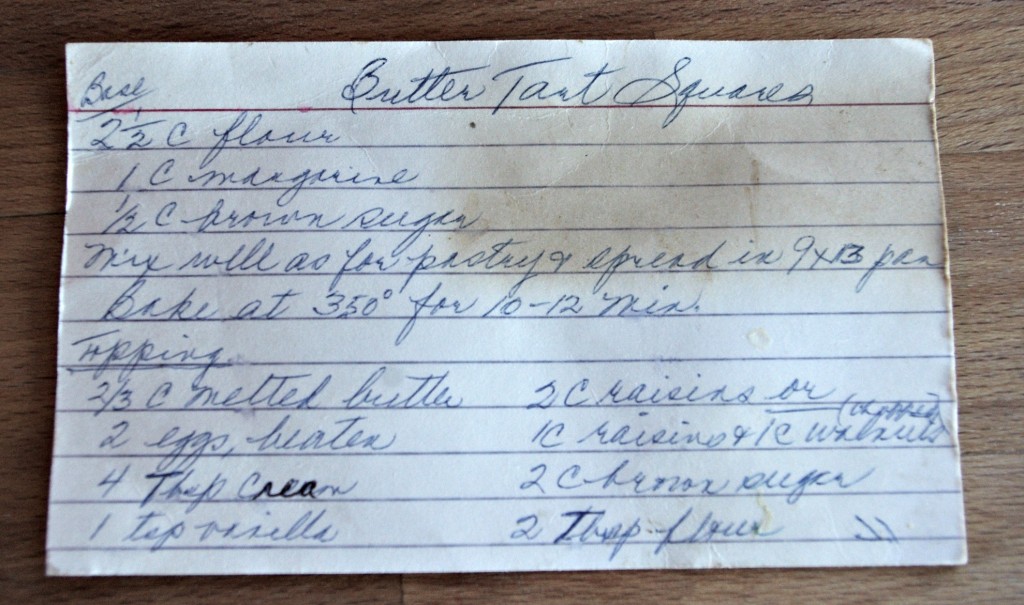 Butter Tart Squares
Base
2 1/2 C flour
1 C margarine
1/2 C brown sugar
Mix well as for pastry & spread in 9x13 pan
Bake at 350° for 10-12 min.
Topping
2/3 C melted butter
2 eggs, beaten
4 Tbsp Cream
1 tsp vanilla
2 C raisins or
1C raisins & 1C walnuts (chopped)
2 C brown sugar
2 Tbsp flour